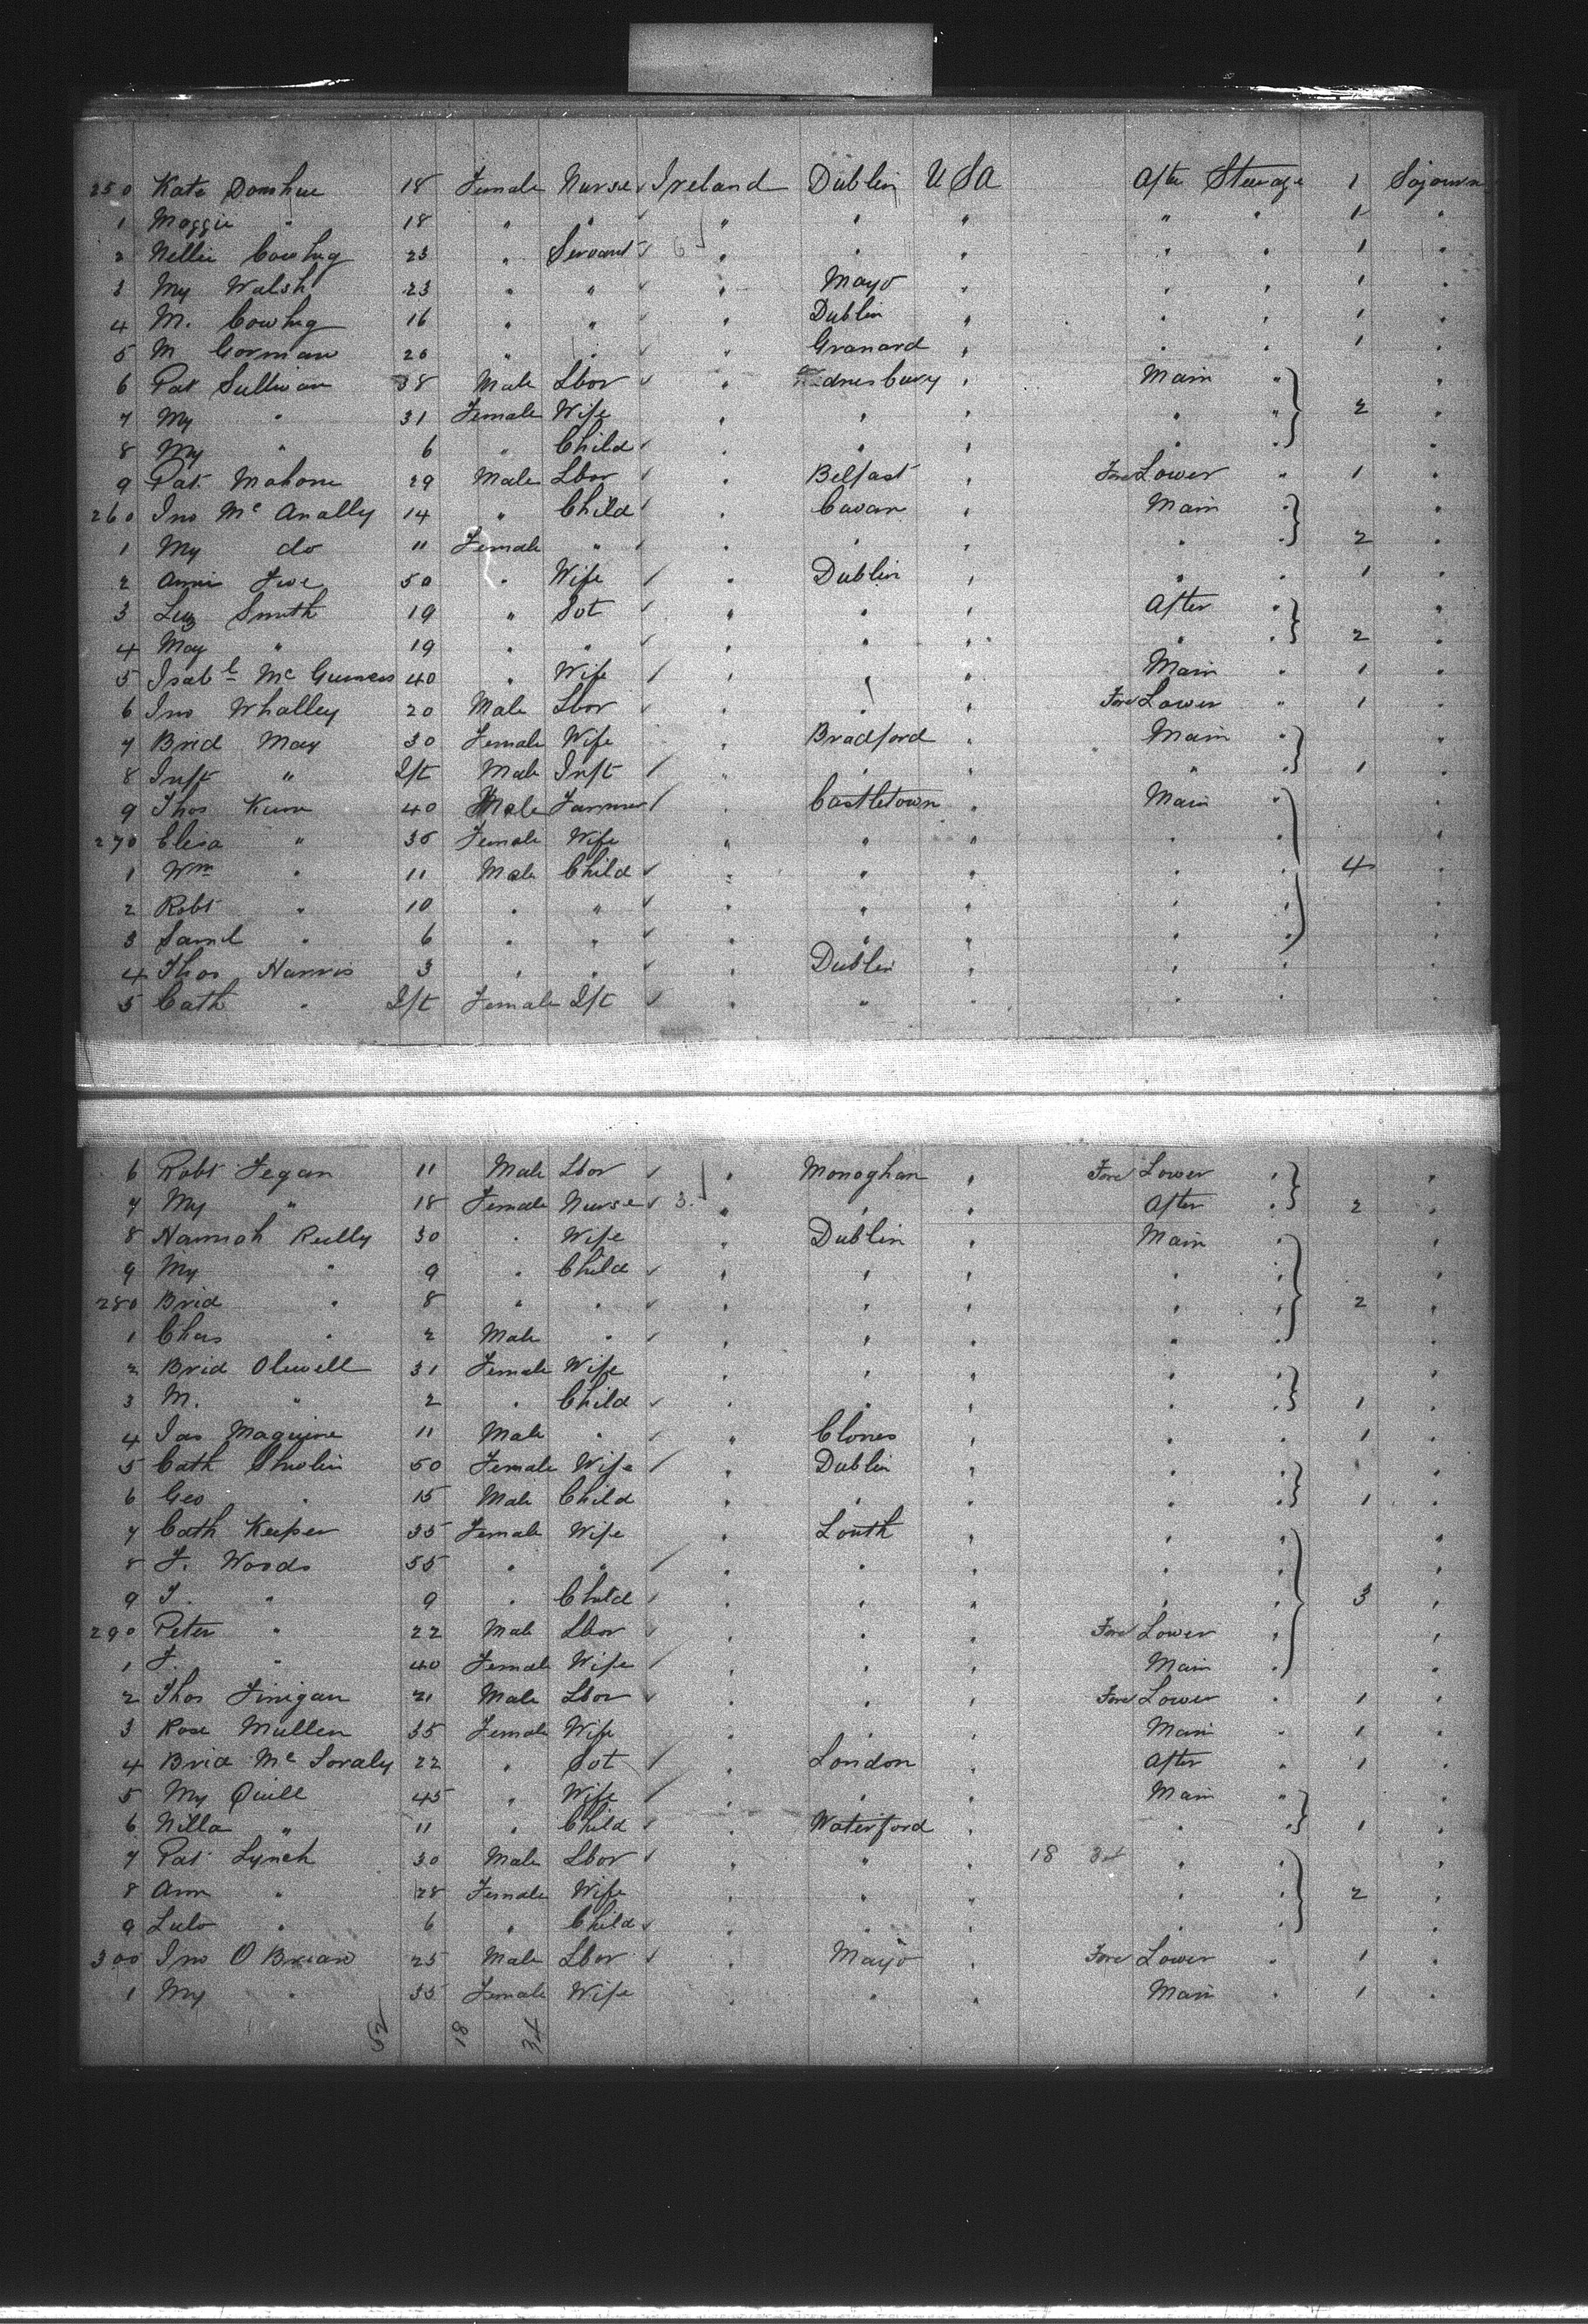 250 Kate Donohue 18 Female Nurse Ireland Dublin USA After Steerage 1 Sojourn
1 Maggie " 18 " " " " " " " 1 "
2 Nellie Cowhig 23 " Servant 6 " " " " " 1 "
3 My Walsh 23 " " " Mayo " " " 1 "
4 M. Cowhig 16 " " " Dublin " " " 1 "
5 M Gorman 20 " " " Granard " " " 1 "
6 Pat Sullivan 38 Male Lbor " Wednesbury " Main " "
7 My " 31 Female Wife " " " " " 2 "
8 My " 6 " Child " " " " " "
9 Pat Mahone 29 Male Lbor " Belfast " Fore Lower " 1 "
260 Jno McAnally 14 " Child " Cavan " Main " "
1 My do 11 Female " " " " " " 2 "
2 Annie 50 " Wife " Dublin " " 1 "
3 Liz Smith 19 " Svt " " " After " "
4 May " 19 " " " " " " " 2 "
5 Isabl Mc 40 " Wife " " " Main " 1 "
6 Jno Whalley 20 Male Lbor " " " Fore Lower " 1 "
7 Brid May 30 Female Wife " Bradford " Main " "
8 Inft " Ift Male Inft " " " " " 1 "
9 Thos 40 Male Farmer " Castletown " Main " "
270 Eliza " 36 Female Wife " " " " " "
1 Wm " 11 Male Child " " " " " 4 "
2 Robt " 10 " " " " " " " "
3 Saml " 6 " " " " " " " "
4 Thos Harris 3 " " " Dublin " " " "
5 Cath " Ift Female Ift " " " " " "
6 Robt Fegan 11 Male Lbor " Monoghan " Fore Lower " "
7 My " 18 Female Nurse 3. " " " After " 2 "
8 Hannah Reilly 30 " Wife " Dublin " Main " "
9 My " 9 " Child " " " " " "
280 Brid " 8 " " " " " " " 2 "
1 Chas " 2 Male " " " " " " "
2 Brid Olwell 31 Female Wife " " " " " "
3 M. " 2 " Child " " " " " 1 "
4 Jas Maguire 11 Male " " Clones " " " 1 "
5 Cath 50 Female Wife " Dublin " " " "
6 Geo " 15 Male Child " " " " " 1 "
7 Cath Keiper 35 Female Wife " Louth " " " "
8 J. Woods 55 " " " " " " " "
9 J. " 9 " Child " " " " " 3 "
290 Peter " 22 Male Lbor " " " Fore Lower " "
1 J. " 40 Female Wife " " " Main " "
2 Thos Finigan 21 Male Lbor " " " Fore Lower " 1 "
3 Rose Mullen 35 Female Wife " " " Main " 1 "
4 Brid Mc 22 " Svt " London " After " 1 "
5 My Quill 45 " Wife " " " Main " "
6 Nilla " 11 " Child " Waterford " " " 1 "
7 Pat Lynch 30 Male Lbor " " " 18 34 " " "
8 Ann " 28 Female Wife " " " " " 2 "
9 Lulo " 6 " Child " " " " " "
300 Jno O Brian 25 Male Lbor " Mayo " Fore Lower " 1 "
1 My " 35 Female Wife " " " Main " 1 "
52 18 34